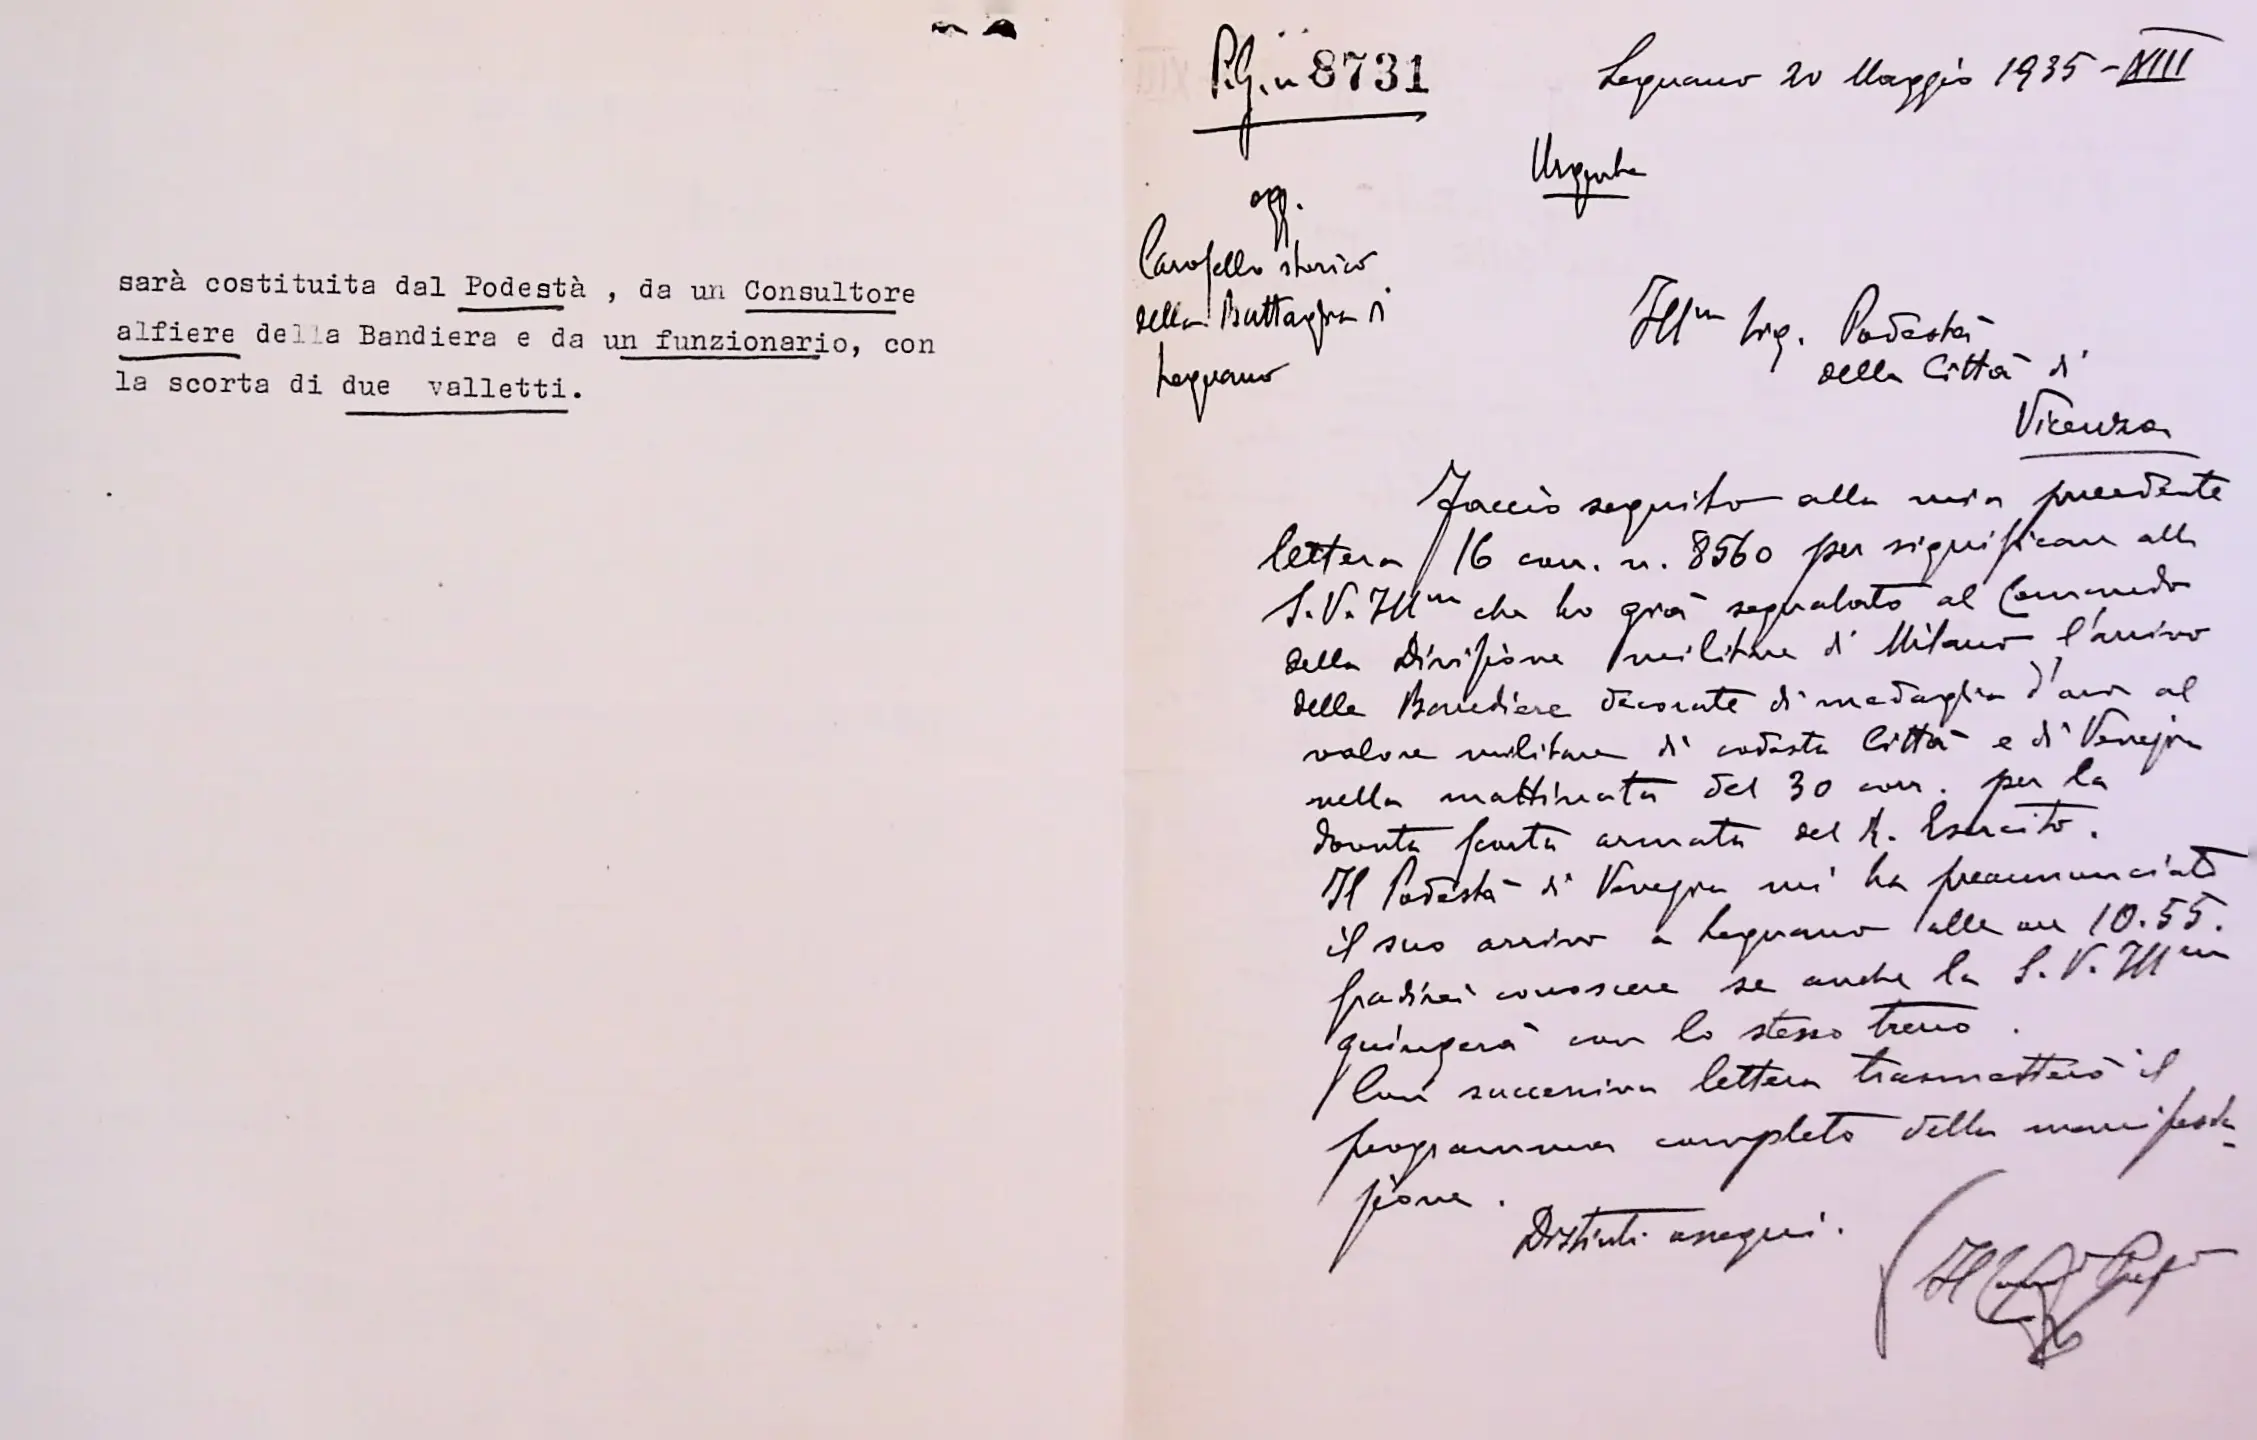 sarà costituita dal Podestà , da un Consultore
alfiere della Bandiera e da un funzionario, con
la scorta di due valletti.
P.G. n 8731
Legnano 20 Maggio 1935-XIII
Urgente
ogg.
Carosello storico
della Battaglia di
Legnano
Ill.mo Sig. Podestà
della Città di
Vicenza
Faccio seguito alla mia precedente
lettera 16 corr. n. 8560 per significare alla
S.V. Ill.ma che ho già segnalato al Comando
della Divisione militare di Milano l'arrivo
delle Bandiere decorate di medaglia d'oro al
valore militare di codesta Città e di Venezia
nella mattinata del 30 corr. per la
dovuta scorta armata del R. Esercito.
Il Podestà di Venezia mi ha preannunciato
il suo arrivo a Legnano alle ore 10.55.
Gradirei conoscere se anche la S.V. Ill.ma
giungerà con lo stesso treno.
Con successiva lettera trasmetterò il
programma completo della manifesta-
zione.
Distinti ossequi.
Il